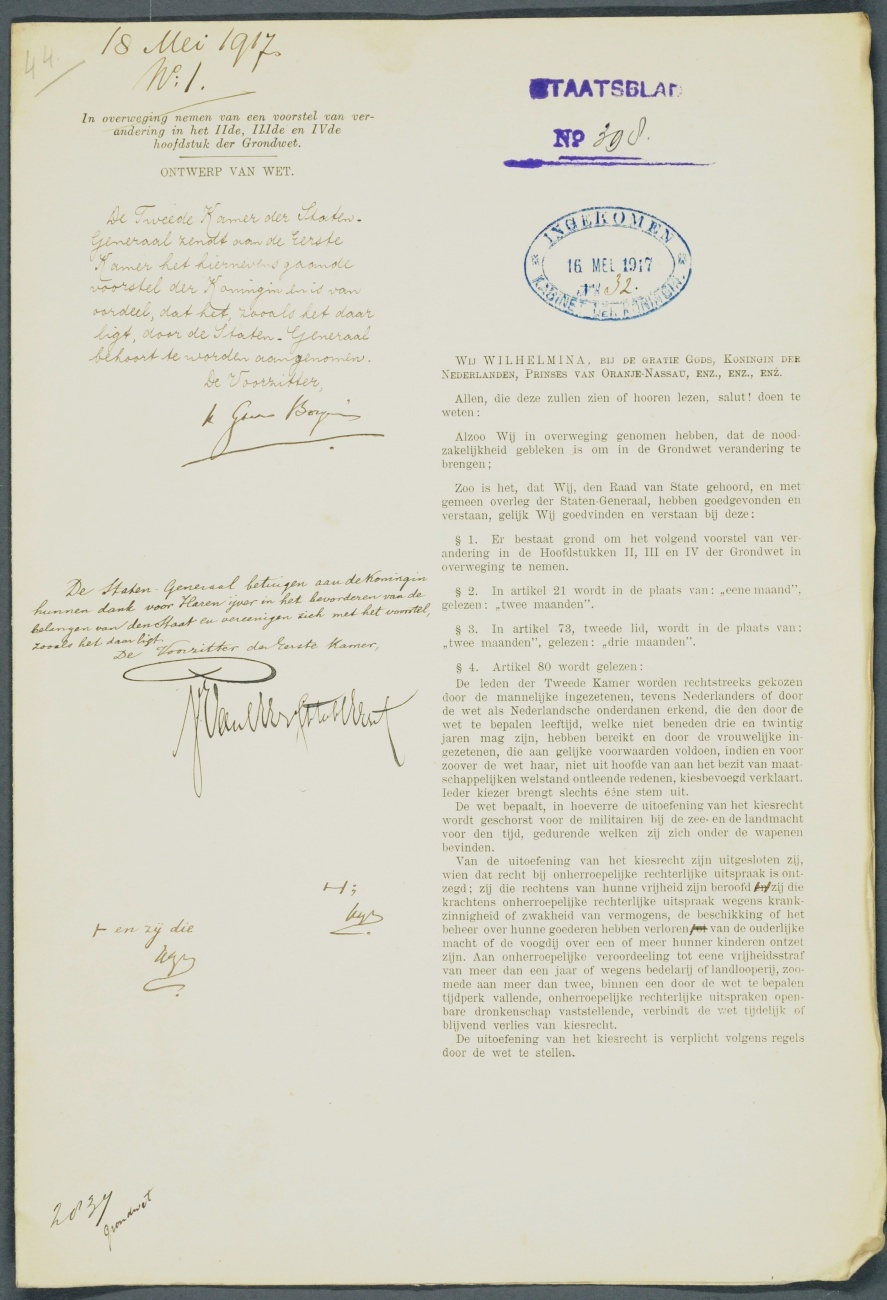 44.
18 Mei 1917.
No: 1.
In overweging nemen van een voorstel van ver-
andering in het IIde, IIIde en IVde
hoofdstuk der Grondwet.
ONTWERP VAN WET.
De Tweede Kamer der Staten-
Generaal zendt aan de Eerste
Kamer het hiernevens gaande
voorstel der Koningin en is van
oordeel, dat het, zooals het daar
ligt, door de Staten-Generaal
behoort te worden aangenomen.
De Voorzitter,
De Staten-Generaal betuigen aan de Koningin
hunnen dank voor Haren ijver in het bevorderen van de
belangen van den Staat en vereenigen zich met het voorstel,
zooals het daar ligt.
De Voorzitter der Eerste Kamer,
en zij die
Grondwet
STAATSBLAD
No 398.
INGEKOMEN
16 MEI 1917
No 32.
KABINET DER KONINGIN.
WIJ WILHELMINA, BIJ DE GRATIE GODS, KONINGIN DER
NEDERLANDEN, PRINSES VAN ORANJE-NASSAU, ENZ., ENZ., ENZ.
Allen, die deze zullen zien of hooren lezen, salut! doen te
weten:
Alzoo Wij in overweging genomen hebben, dat de nood-
zakelijkheid gebleken is om in de Grondwet verandering te
brengen;
Zoo is het, dat Wij, den Raad van State gehoord, en met
gemeen overleg der Staten-Generaal, hebben goedgevonden en
verstaan, gelijk Wij goedvinden en verstaan bij deze:
§ 1. Er bestaat grond om het volgend voorstel van ver-
andering in de Hoofdstukken II, III en IV der Grondwet in
overweging te nemen.
§ 2. In artikel 21 wordt in de plaats van: „eene maand”,
gelezen: „twee maanden”.
§ 3. In artikel 73, tweede lid, wordt in de plaats van:
„twee maanden”, gelezen: „drie maanden”.
§ 4. Artikel 80 wordt gelezen:
De leden der Tweede Kamer worden rechtstreeks gekozen
door de mannelijke ingezetenen, tevens Nederlanders of door
de wet als Nederlandsche onderdanen erkend, die den door de
wet te bepalen leeftijd, welke niet beneden drie en twintig
jaren mag zijn, hebben bereikt en door de vrouwelijke in-
gezetenen, die aan gelijke voorwaarden voldoen, indien en voor
zoover de wet haar, niet uit hoofde van aan het bezit van maat-
schappelijken welstand ontleende redenen, kiesbevoegd verklaart.
Ieder kiezer brengt slechts ééne stem uit.
De wet bepaalt, in hoeverre de uitoefening van het kiesrecht
wordt geschorst voor de militairen bij de zee- en de landmacht
voor den tijd, gedurende welken zij zich onder de wapenen
bevinden.
Van de uitoefening van het kiesrecht zijn uitgesloten zij,
wien dat recht bij onherroepelijke rechterlijke uitspraak is ont-
zegd; zij die rechtens van hunne vrijheid zijn beroofd zij die
krachtens onherroepelijke rechterlijke uitspraak wegens krank-
zinnigheid of zwakheid van vermogens, de beschikking of het
beheer over hunne goederen hebben verloren van de ouderlijke
macht of de voogdij over een of meer hunner kinderen ontzet
zijn. Aan onherroepelijke veroordeeling tot eene vrijheidsstraf
van meer dan een jaar of wegens bedelarij of landlooperij, zoo-
mede aan meer dan twee, binnen een door de wet te bepalen
tijdperk vallende, onherroepelijke rechterlijke uitspraken open-
bare dronkenschap vaststellende, verbindt de wet tijdelijk of
blijvend verlies van kiesrecht.
De uitoefening van het kiesrecht is verplicht volgens regels
door de wet te stellen.